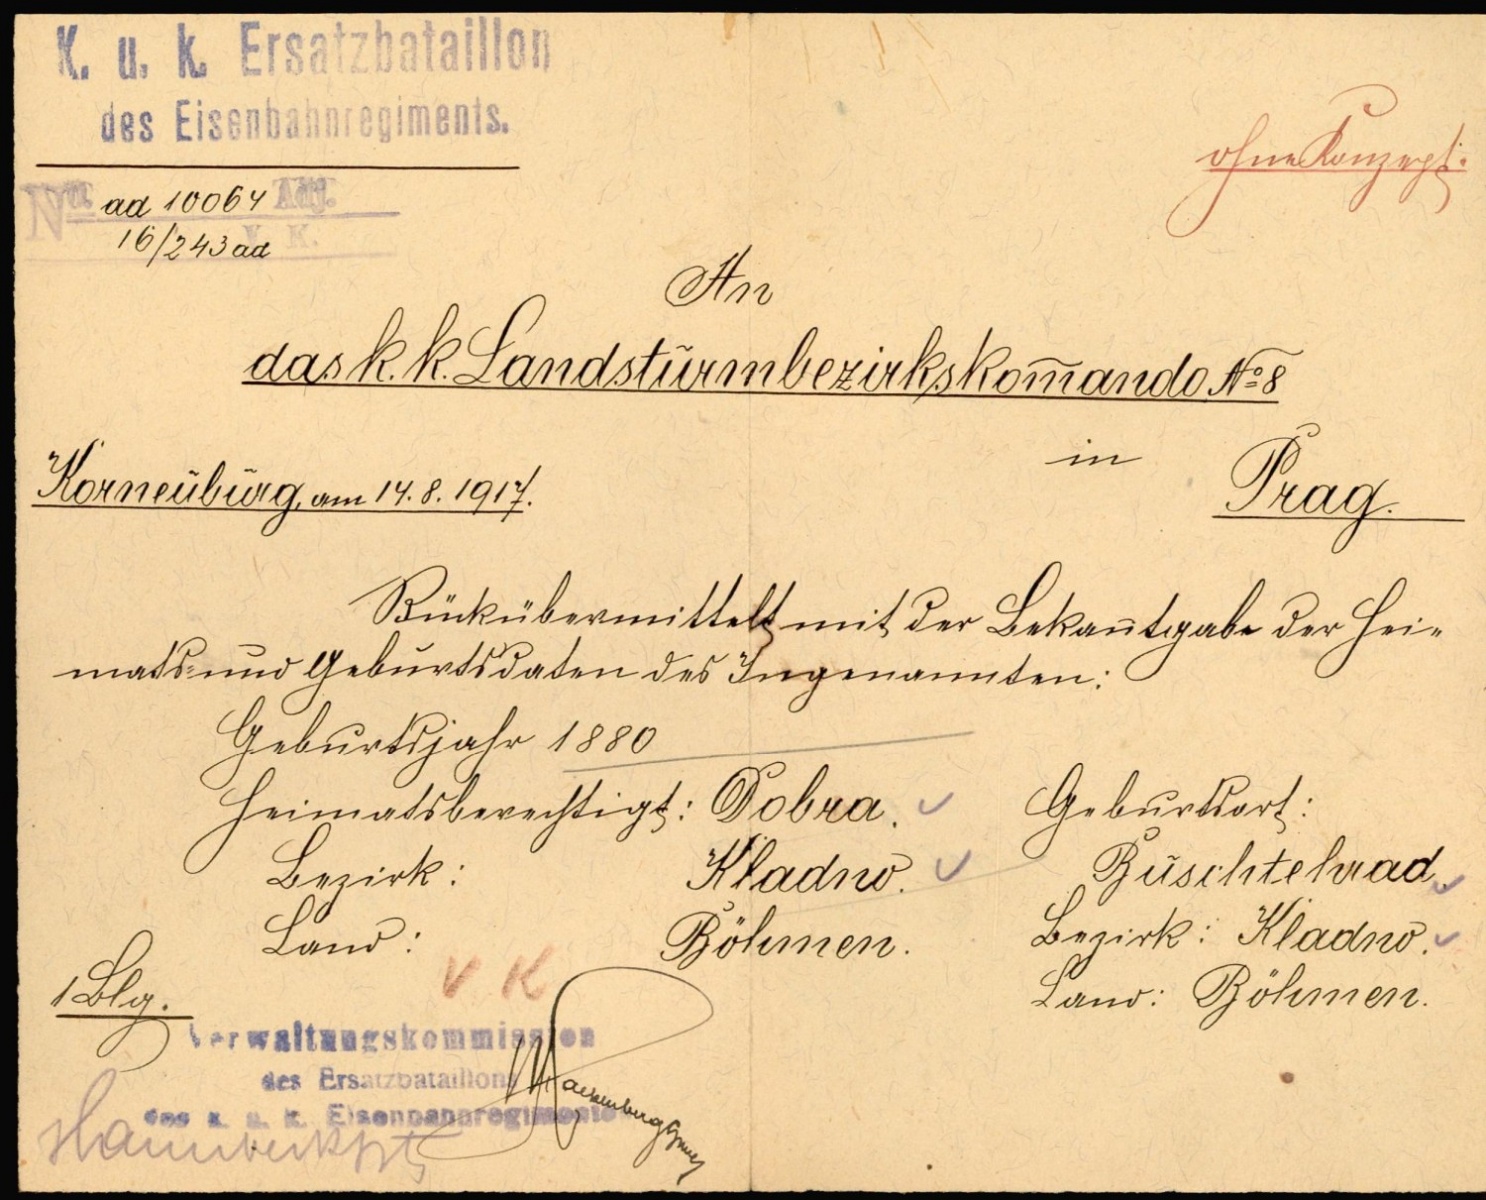 K. u. k. Ersatzbataillon
des Eisenbahnregiments.
ohne Konzept.
No. ad 10064 Adj.
16/243 ad V. K.
An
das k. k. Landsturmbezirkskom̅ando No 8
in Prag.
Korneuburg, am 14. 8. 1917.
Rückübermittelt mit der Bekan̅tgabe der Hei-
mats- und Geburtsdaten des Ingenannten:
Geburtsjahr 1880
Heimatsberechtigt: Dobra. Geburtsort:
Bezirk: Kladno. Buschtehrad
Land: Böhmen. Bezirk: Kladno.
Land: Böhmen.
1 Blg.
V K
Verwaltungskommission
des Ersatzbataillons
des k. u. k. Eisenbahnregiments